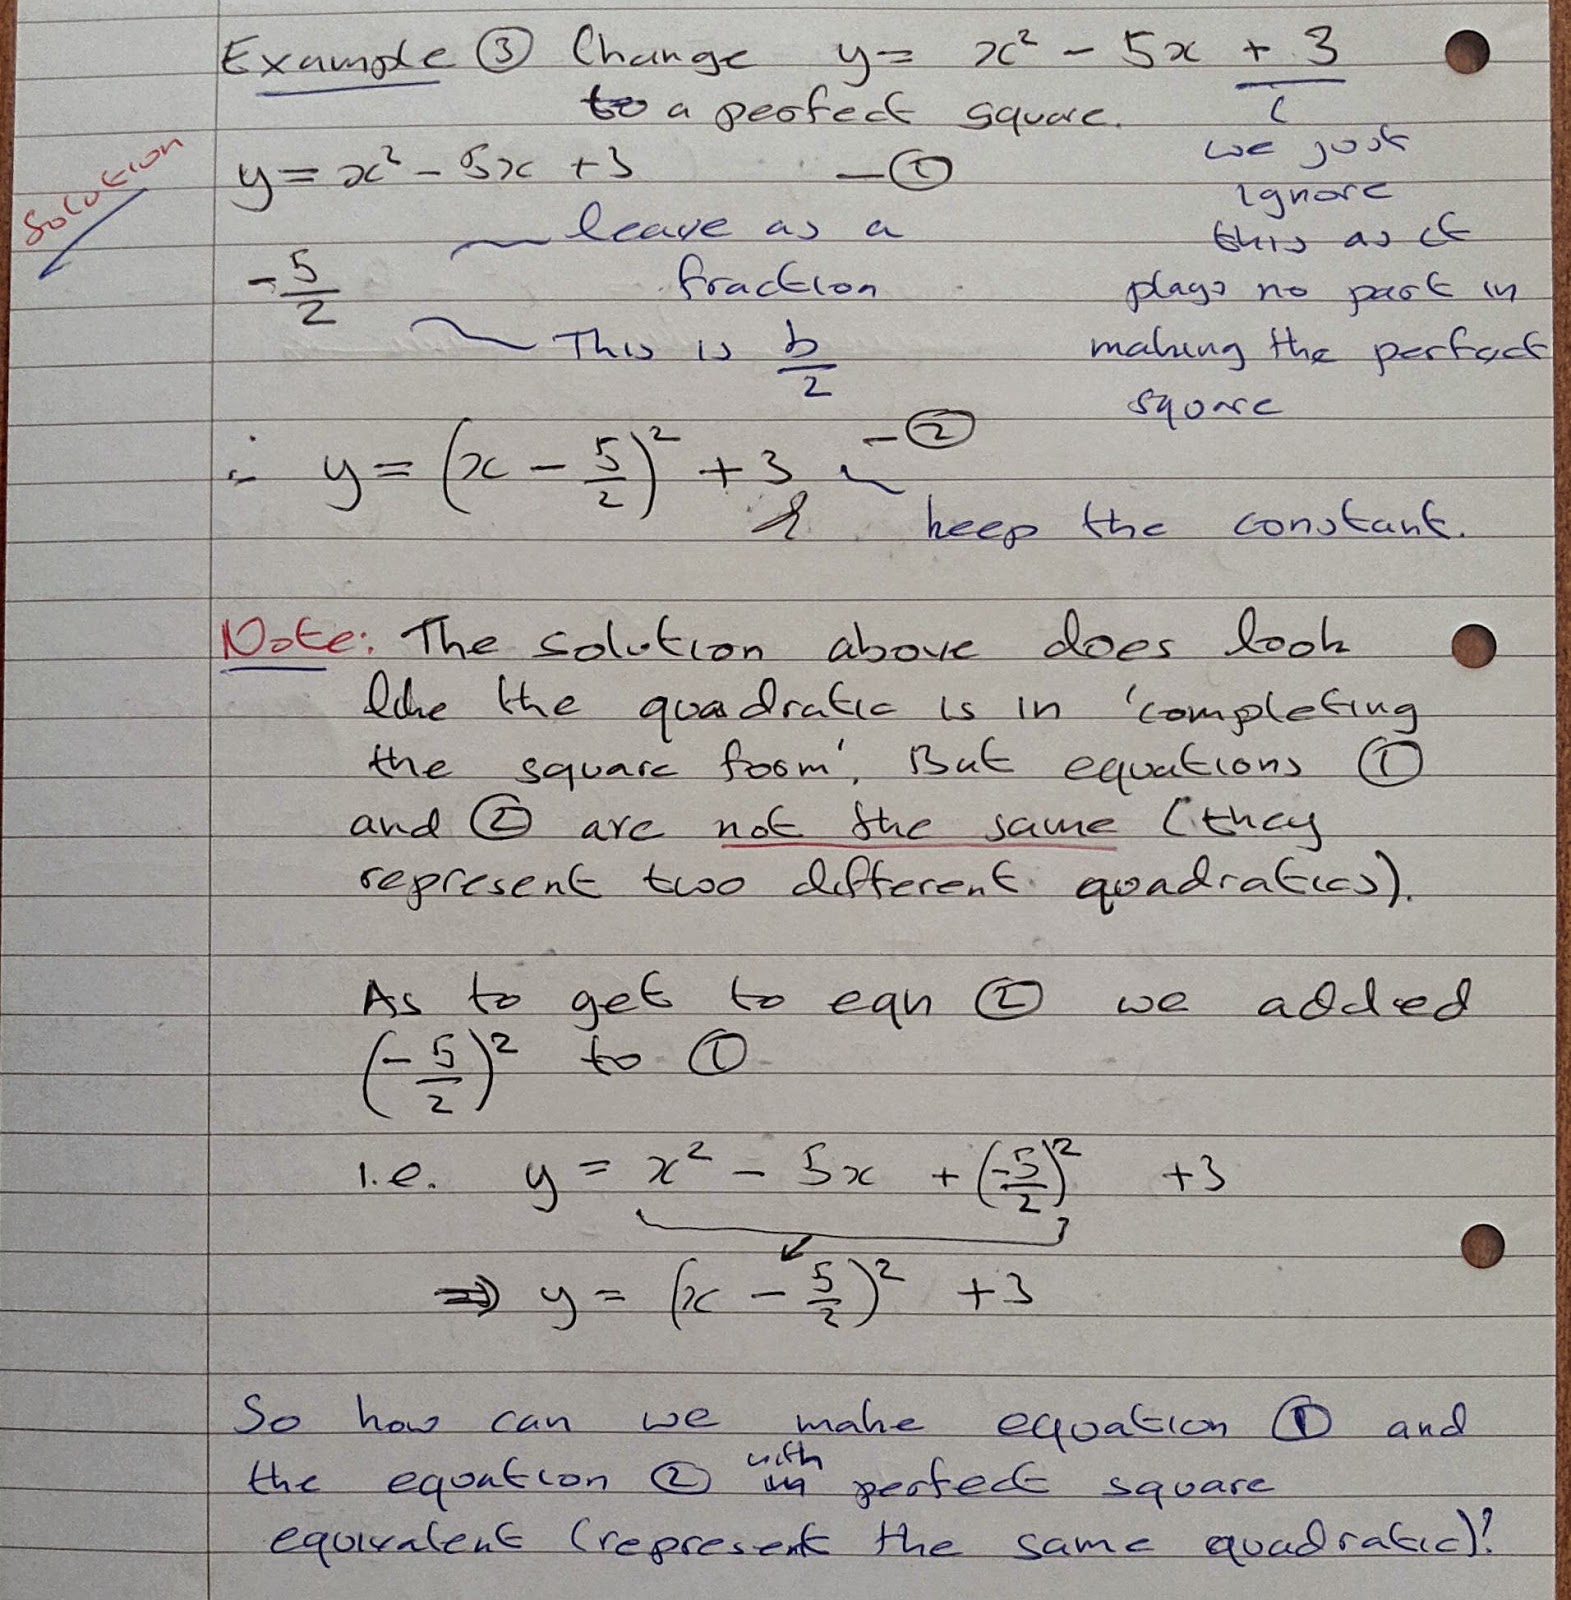 Example ③ Change y = x² - 5x + 3
to a perfect square.
we just
ignore
this as it
plays no part in
making the perfect
square
Solution
y = x² - 5x + 3 - ①
-5/2
leave as a
fraction
This is b/2
∴ y = (x - 5/2)² + 3 - ②
keep the constant.
Note: The solution above does look
like the quadratic is in 'completing
the square form'. But equations ①
and ② are not the same (they
represent two different quadratics).
As to get to eqn ② we added
(-5/2)² to ①
i.e. y = x² - 5x + (-5/2)² + 3
⇒ y = (x - 5/2)² + 3
So how can we make equation ① and
the equation ② with perfect square
equivalent (represent the same quadratic)?